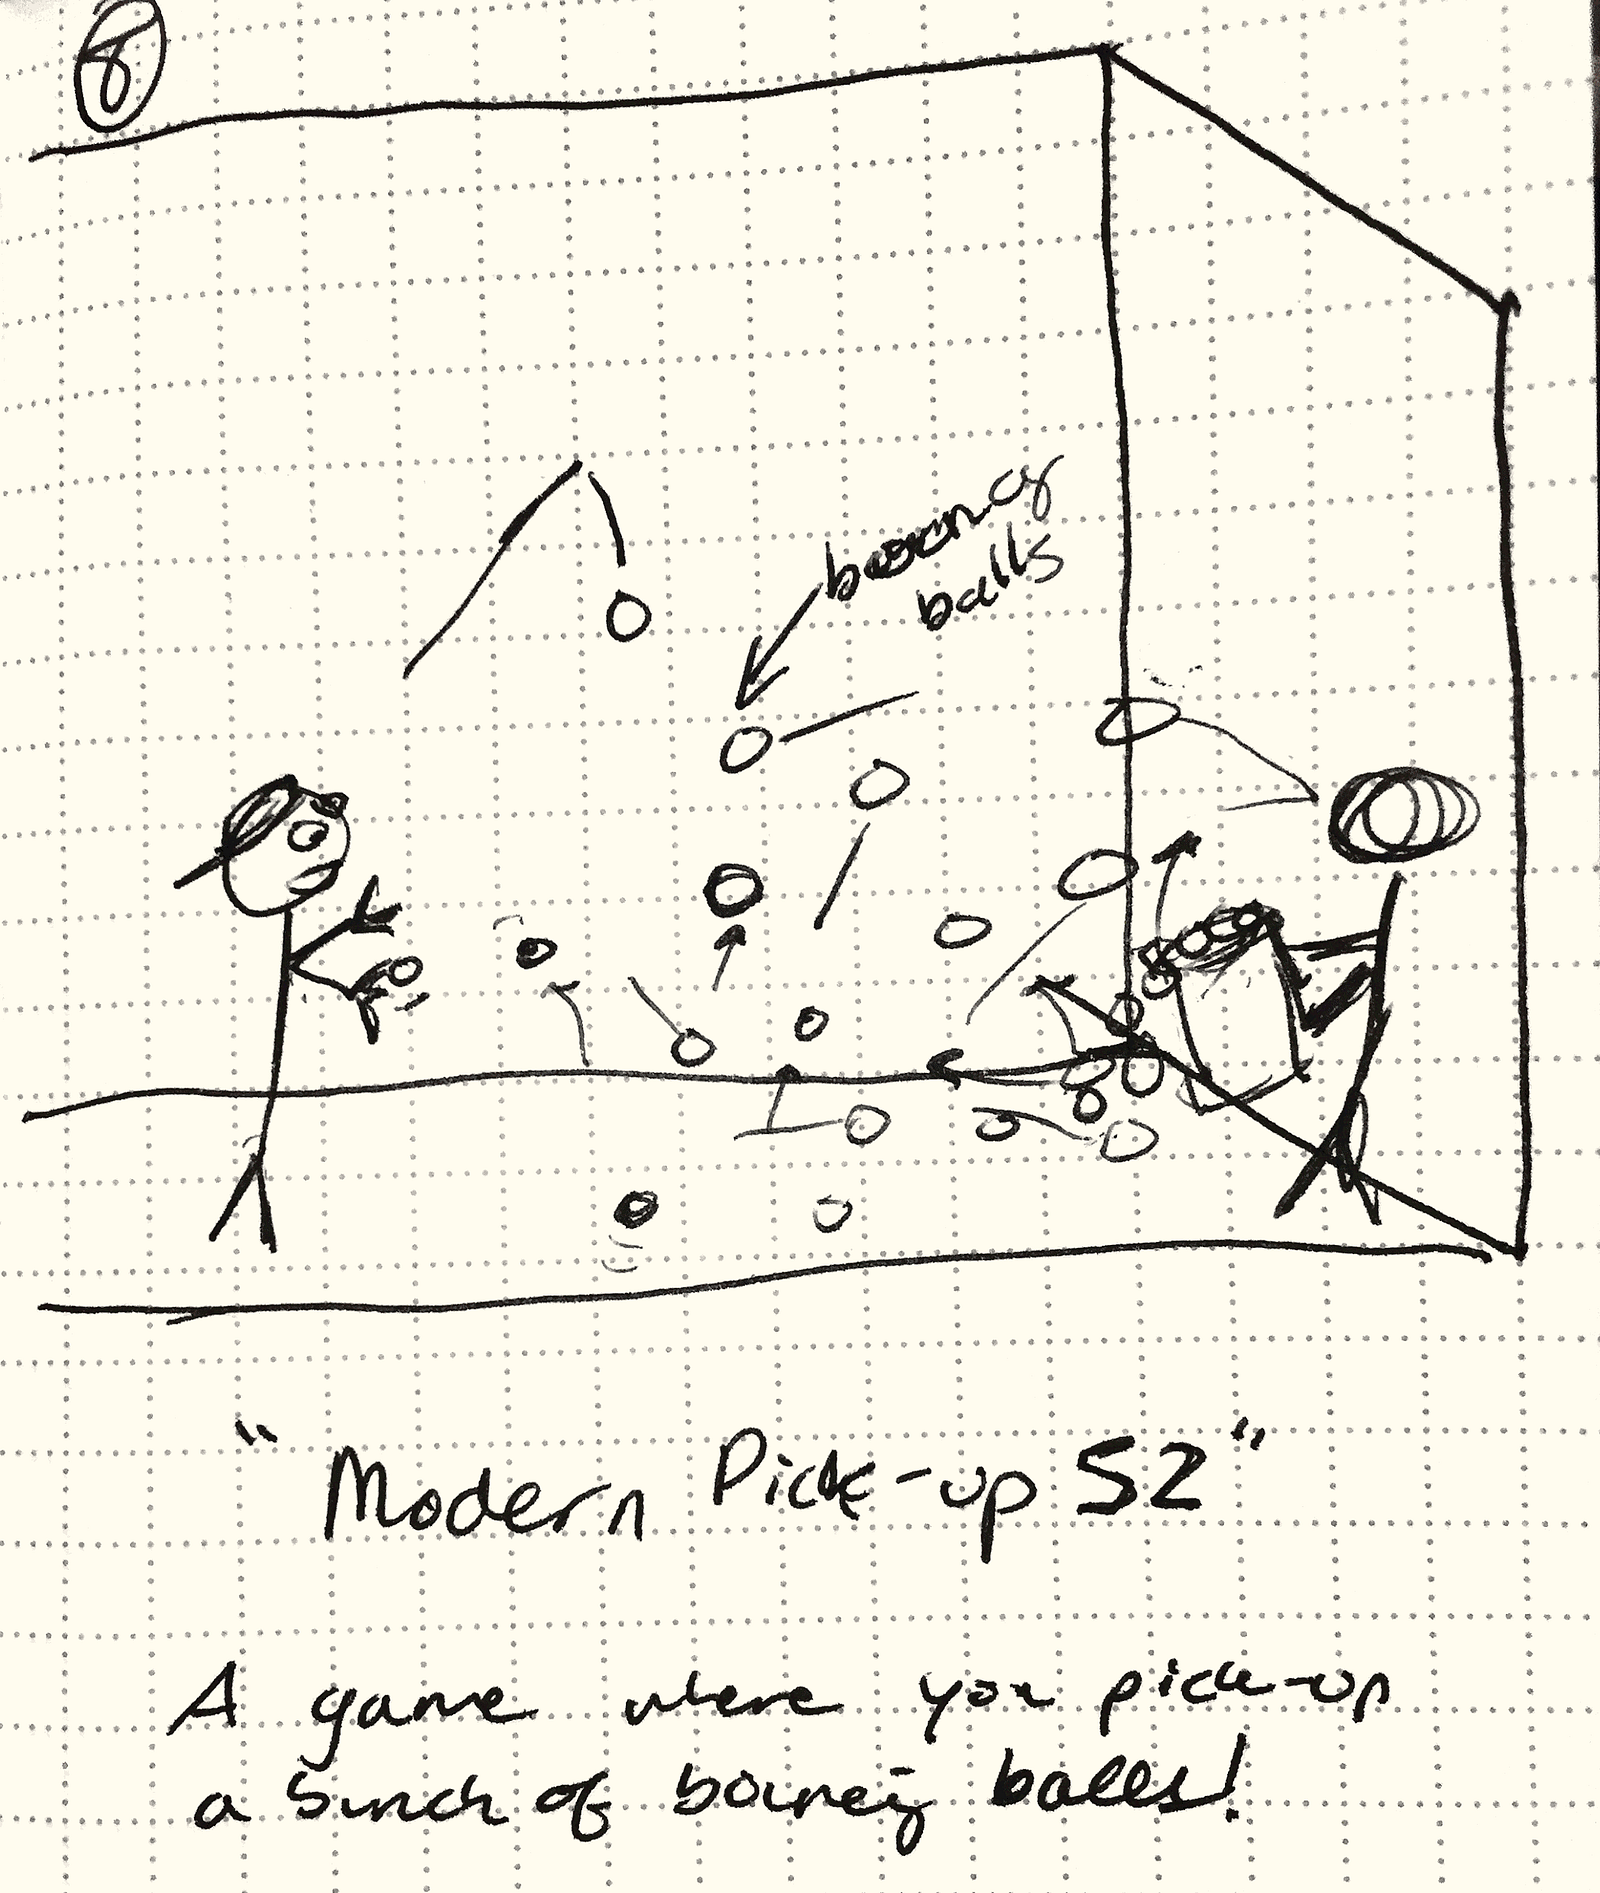 8
bouncy
balls
"Modern Pick-up 52"
A game where you pick-up
a bunch of bouncy balls!